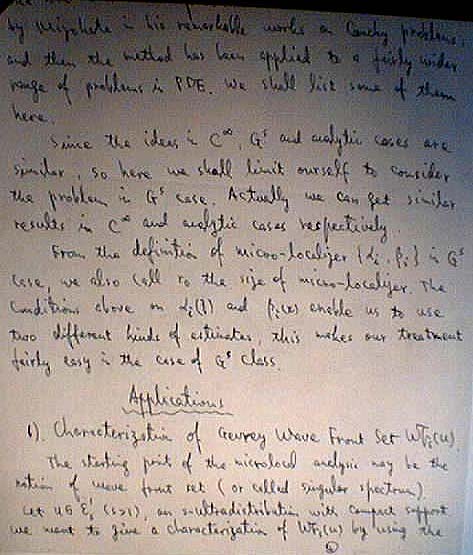 by Mizohata in his remarkable works on Cauchy problems
and then the method has been applied to a fairly wider
range of problems in PDE. We shall list some of them
here.
Since the ideas in C^∞, G^s and analytic cases are
similar, so here we shall limit ourself to consider
the problem in G^s case. Actually we can get similar
results in C^∞ and analytic cases respectively.
From the definition of micro-localizer {α_i, β_i} in G^s
case, we also call r_0 the size of micro-localizer. The
Conditions above on α_i(ξ) and β_i(x) enable us to use
two different kinds of estimates, this makes our treatment
fairly easy in the case of G^s class.
Applications
1). Characterization of Gevrey Wave Front Set WF_s(u).
The starting point of the microlocal analysis may be the
notion of wave front set (or called singular spectrum).
Let u∈ E_s' (s>1), an s-ultradistribution with compact support
we want to give a characterization of WF_s(u) by using the